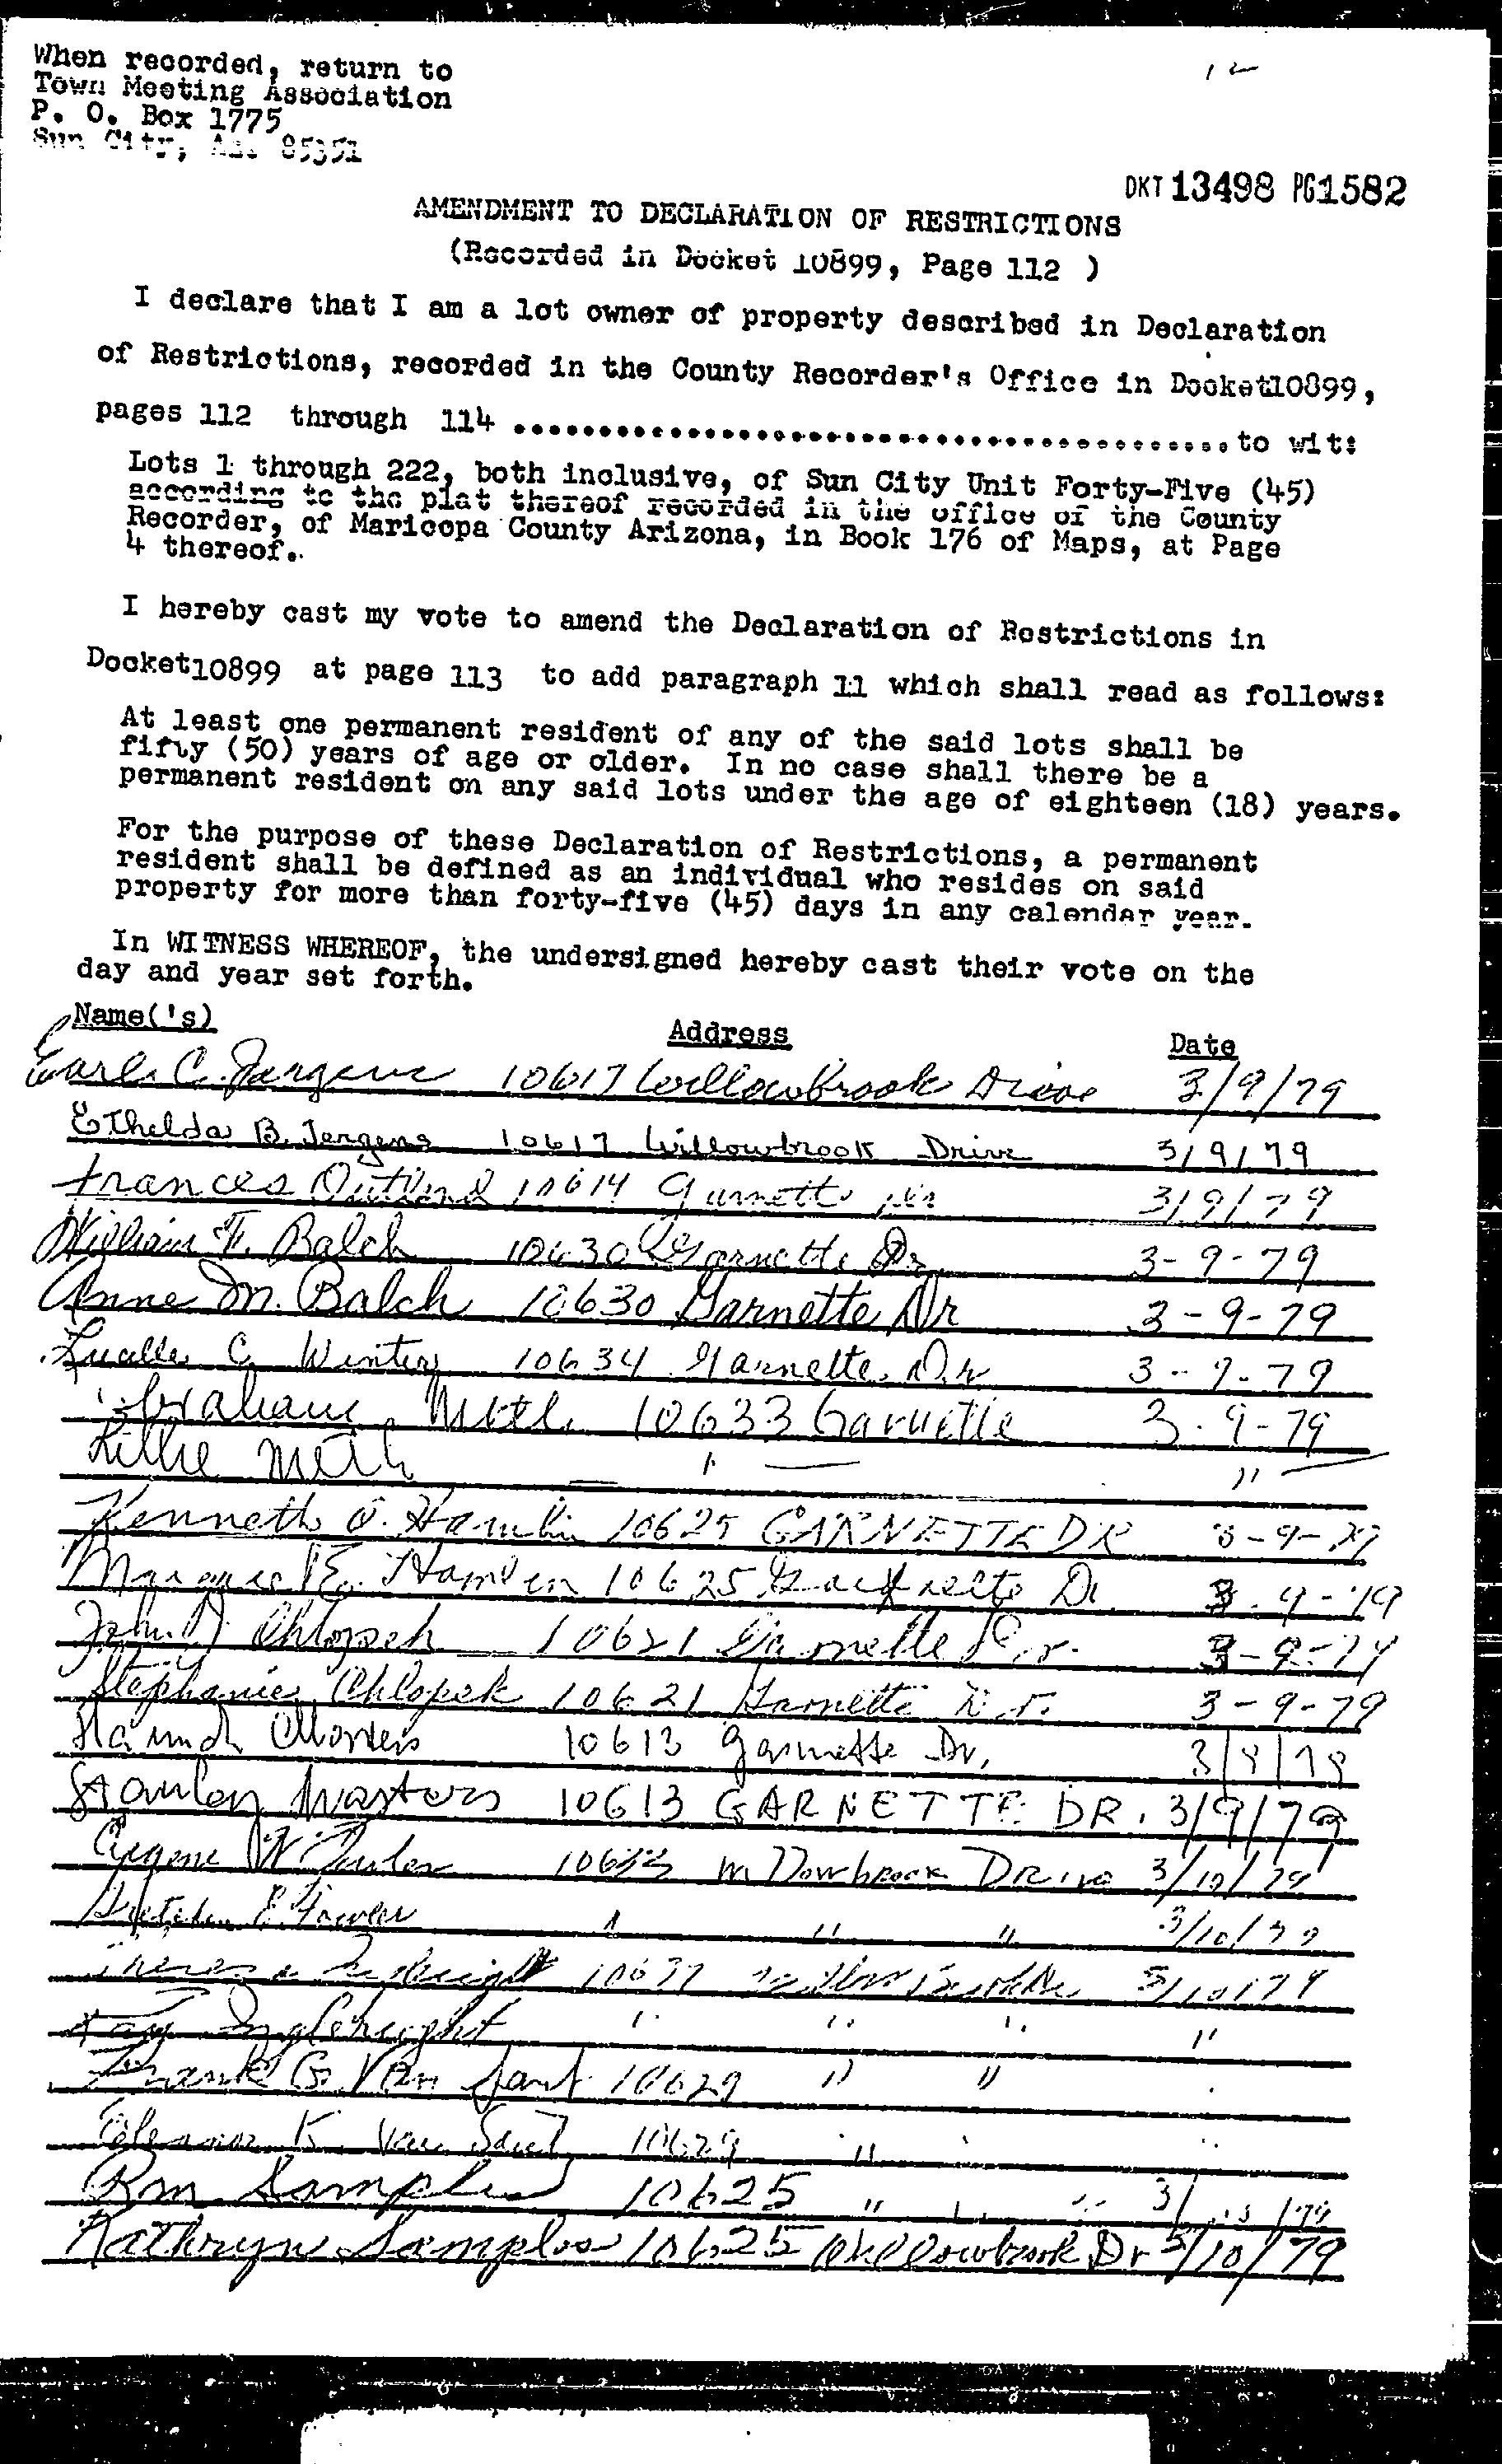 When recorded, return to
Town Meeting Association
P. O. Box 1775
Sun City, Az. 85351
DKT 13498 PG 1582
AMENDMENT TO DECLARATION OF RESTRICTIONS
(Recorded in Docket 10899, Page 112 )
I declare that I am a lot owner of property described in Declaration
of Restrictions, recorded in the County Recorder's Office in Docket10899,
pages 112 through 114 ............................................to wit:
Lots 1 through 222, both inclusive, of Sun City Unit Forty-Five (45)
according to the plat thereof recorded in the office of the County
Recorder, of Maricopa County Arizona, in Book 176 of Maps, at Page
4 thereof.
I hereby cast my vote to amend the Declaration of Restrictions in
Docket10899 at page 113 to add paragraph 11 which shall read as follows:
At least one permanent resident of any of the said lots shall be
fifty (50) years of age or older. In no case shall there be a
permanent resident on any said lots under the age of eighteen (18) years.
For the purpose of these Declaration of Restrictions, a permanent
resident shall be defined as an individual who resides on said
property for more than forty-five (45) days in any calendar year.
In WITNESS WHEREOF, the undersigned hereby cast their vote on the
day and year set forth.
Name('s) Address Date
Earl C. Jergens 10617 Willowbrook Drive 3/9/79
Ethelda B. Jergens 10617 Willowbrook Drive 3/9/79
Frances 10614 Garnette Dr 3/9/79
William F. Balch 10630 Garnette Dr. 3-9-79
Anne M. Balch 10630 Garnette Dr 3-9-79
C. Winter 10634 Garnette Dr 3-9-79
Abraham 10633 Garnette 3-9-79
Lillie " "
Kenneth O. Hamlin 10625 GARNETTE DR 3-9-79
E. Hamlin 10625 Garnette Dr 3-9-79
John J Chlopek 10621 Garnette Dr. 3-9-79
Stephanie Chlopek 10621 Garnette Dr. 3-9-79
Hannah Masters 10613 Garnette Dr.
Stanley Masters 10613 GARNETTE DR. 3/9/79
Eugene W. Fowler 10633 Willowbrook Drive 3/10/79
Gretchen E. Fowler " " " 3/10/79
Theresa Ingleright 10637 Willowbrook Dr 3/10/79
Ingleright " " " "
Frank G. Van Sant 10629 " "
Eleanor K. Van Sant 10629 "
Rm Samples 10625 " "
Kathryn Samples 10625 Willowbrook Dr 3/10/79